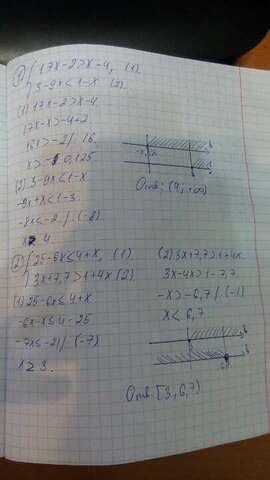 1) { 17x-2>x-4, (1)
3-9x≤1-x (2)
(1) 17x-2>x-4
17x-x>-4+2
16x>-2 | :16
x>-0,125
(2) 3-9x≤1-x
-9x+x≤1-3
-8x≤-2 | :(-8)
x≥4
Отв: (4,+∞)
2) { 25-6x≤4+x, (1)
3x+7,7>1+4x (2)
(1) 25-6x≤4+x
-6x-x≤4-25
-7x≤-21 | :(-7)
x≥3.
(2) 3x+7,7>1+4x
3x-4x>1-7,7
-x>-6,7 | (-1)
x<6,7
Отв. [3,6,7)